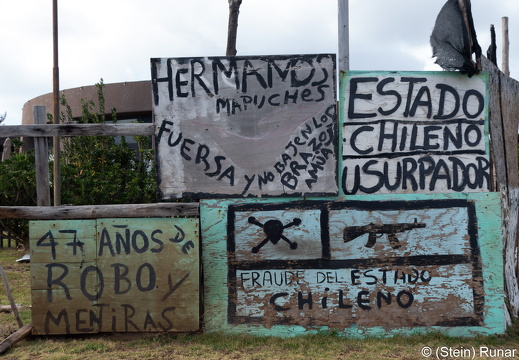 HERMANOS
MAPUCHES
FUERSA Y NO BAJEN LOS
BRAZOS
ESTADO
CHILENO
USURPADOR
47 AÑOS DE
ROBO Y
MENTIRAS
FRAUDE DEL ESTADO
CHILENO
© (Stein) Runar